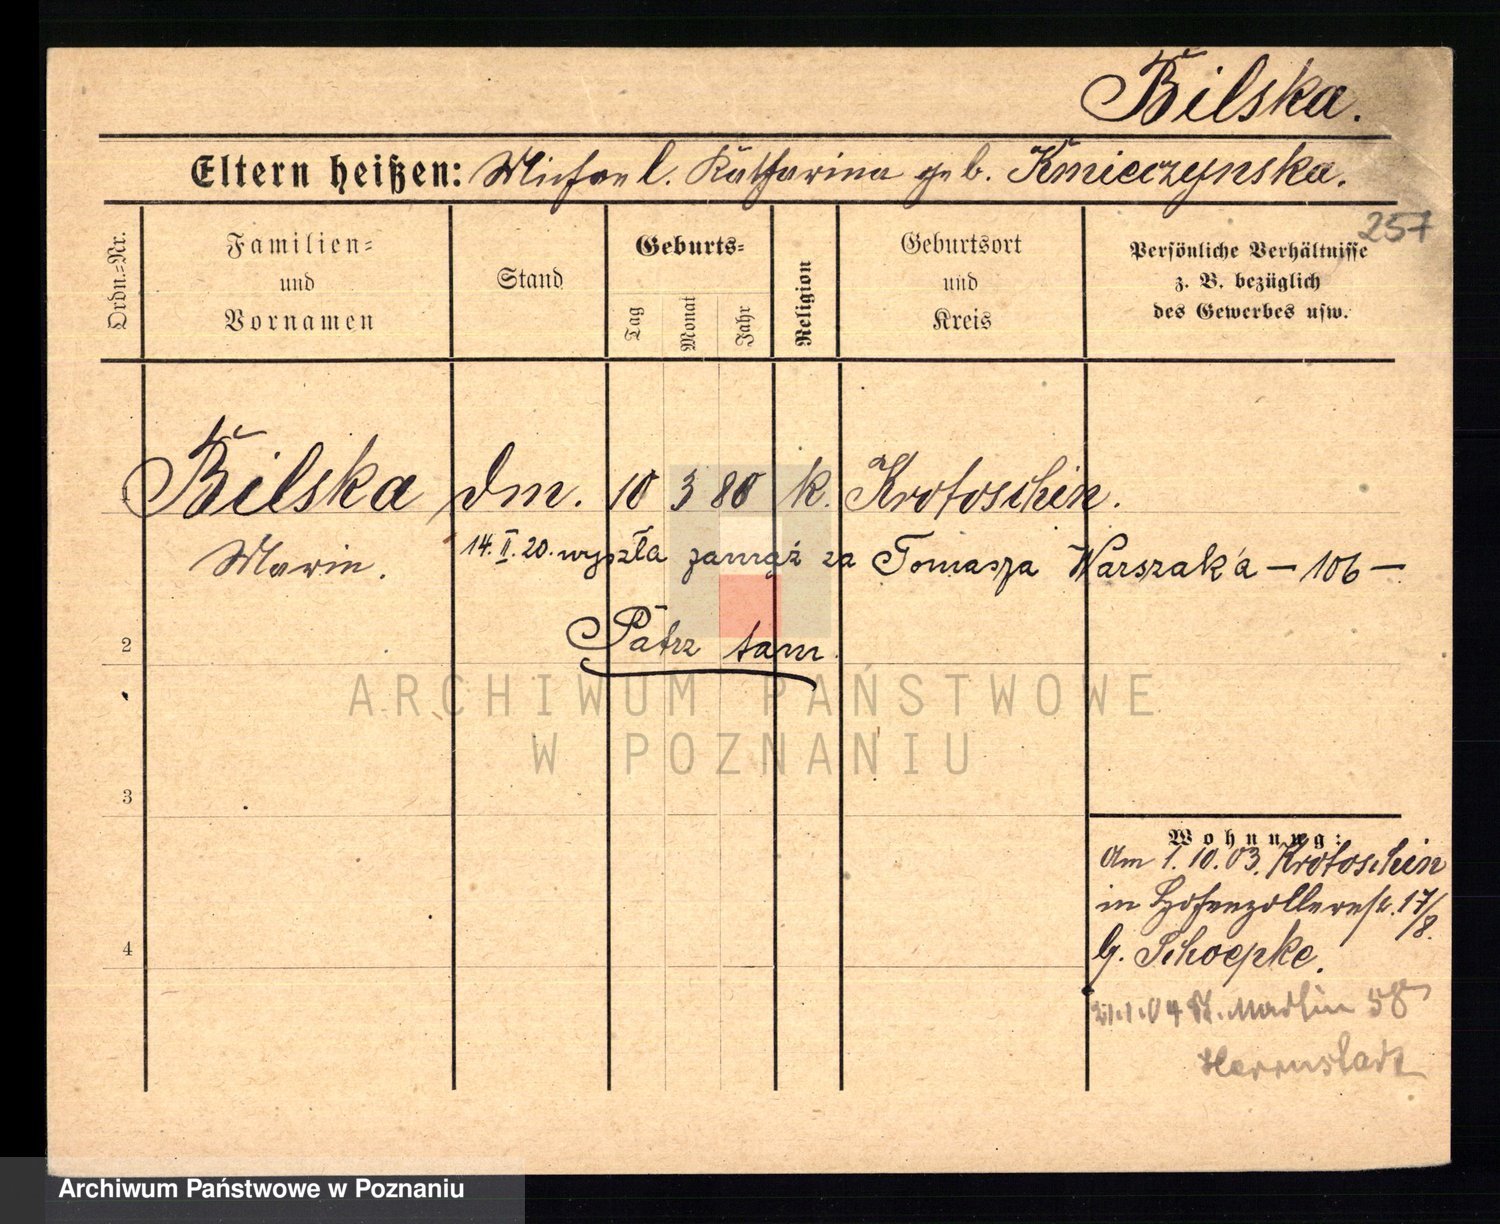 Bilska.
Eltern heißen: Michael. Katharina geb. Kmieczynska.
257
Ordn.=Nr.
Familien=
und
Vornamen
Stand
Geburts=
Tag
Monat
Jahr
Religion
Geburtsort
und
Kreis
Persönliche Verhältnisse
z. B. bezüglich
des Gewerbes usw.
1 Bilska dm. 10 3 80 k. Krotoschin.
Marie.
14. II. 20. wyszła zamąż za Tomasza Warszaka — 106 —
Patrz tam.
2
3
4
ARCHIWUM PAŃSTWOWE
W POZNANIU
Wohnung:
Am 1. 10. 03. Krotoschin
in Hohenzollernstr. 17/8.
b. Schoepke.
04
Herrnstadt
Archiwum Państwowe w Poznaniu